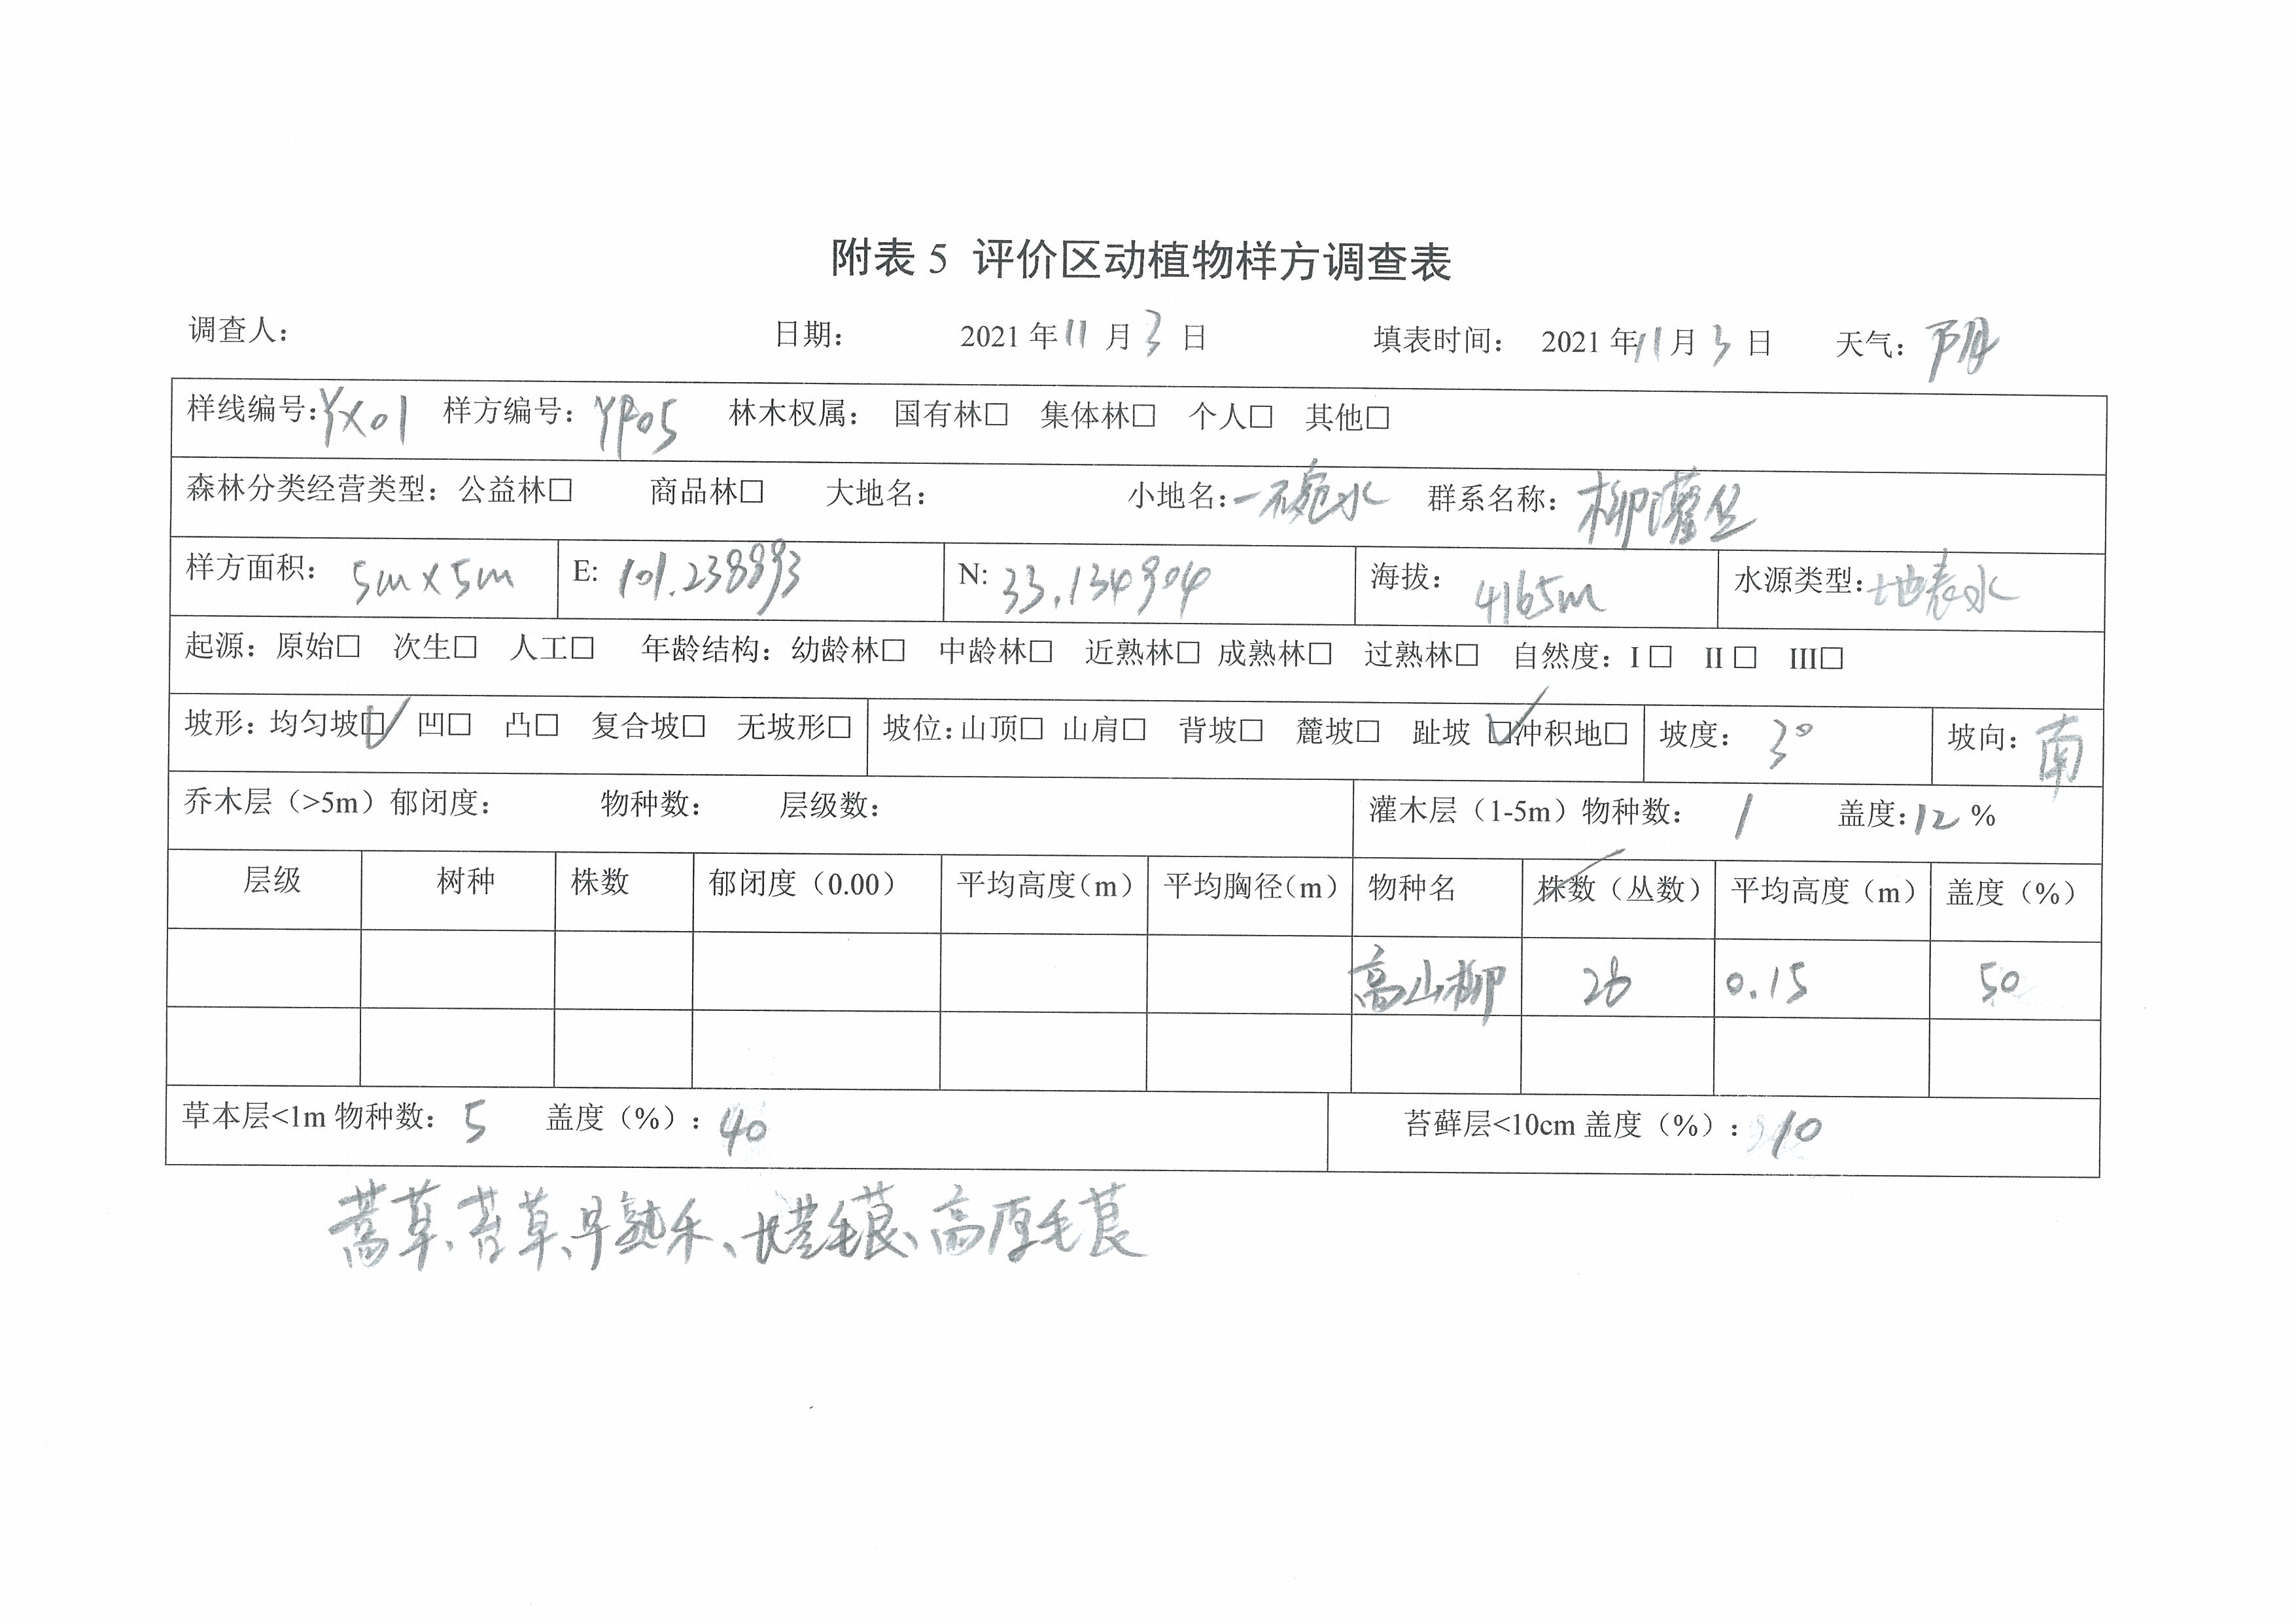 附表 5 评价区动植物样方调查表
调查人： 日期： 2021 年 11 月 3 日 填表时间： 2021 年 11 月 3 日 天气：阴
样线编号：YX01 样方编号：YF05 林木权属： 国有林□ 集体林□ 个人□ 其他□
森林分类经营类型：公益林□ 商品林□ 大地名： 小地名：一碗水 群系名称：柳灌丛
样方面积： 5m×5m E: 101.238893 N: 33.134904 海拔： 4165m 水源类型：地表水
起源：原始□ 次生□ 人工□ 年龄结构：幼龄林□ 中龄林□ 近熟林□ 成熟林□ 过熟林□ 自然度：I □ II □ III□
坡形：均匀坡☑ 凹□ 凸□ 复合坡□ 无坡形□ 坡位：山顶□ 山肩□ 背坡□ 麓坡□ 趾坡 ☑冲积地□ 坡度： 3° 坡向：南
乔木层（>5m）郁闭度： 物种数： 层级数： 灌木层（1-5m）物种数： 1 盖度：12 %
层级 树种 株数 郁闭度（0.00） 平均高度（m） 平均胸径（m） 物种名 株数（丛数） 平均高度（m） 盖度（%）
高山柳 26 0.15 50
草本层<1m 物种数： 5 盖度（%）：40 苔藓层<10cm 盖度（%）：10
蒿草、苔草、早熟禾、毛茛、高原毛茛